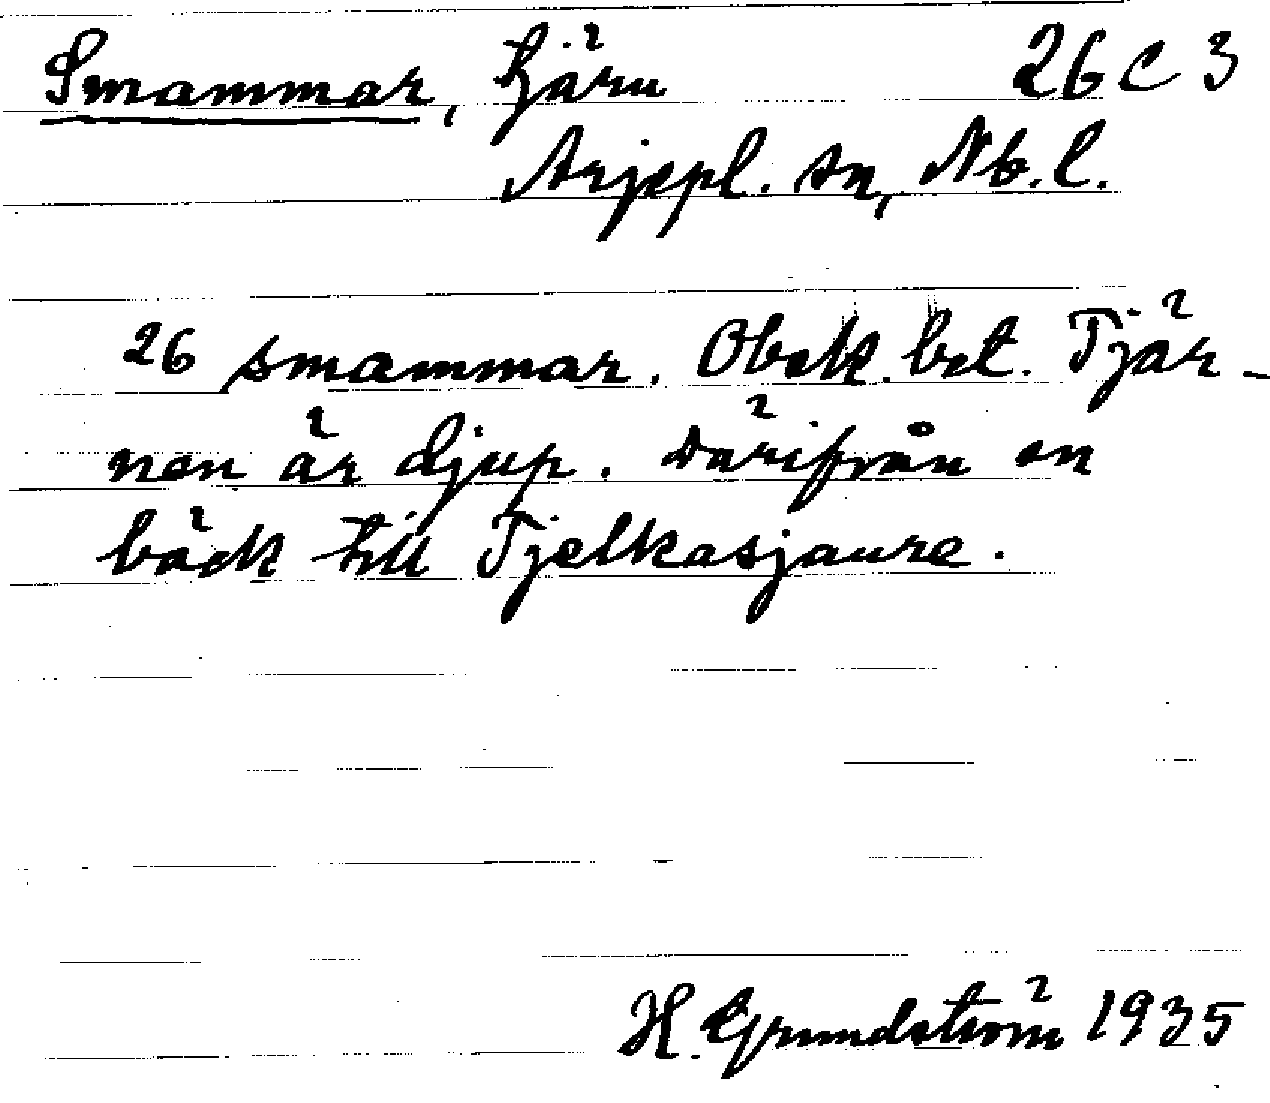 Smammar, tjärn 26 C 3
Arjepl. sn, Nb. l.
26 smammar. Obek. bet. Tjär-
nen är djup. Därifrån en
bäck till Tjelkasjaure.
H. Grundström 1935